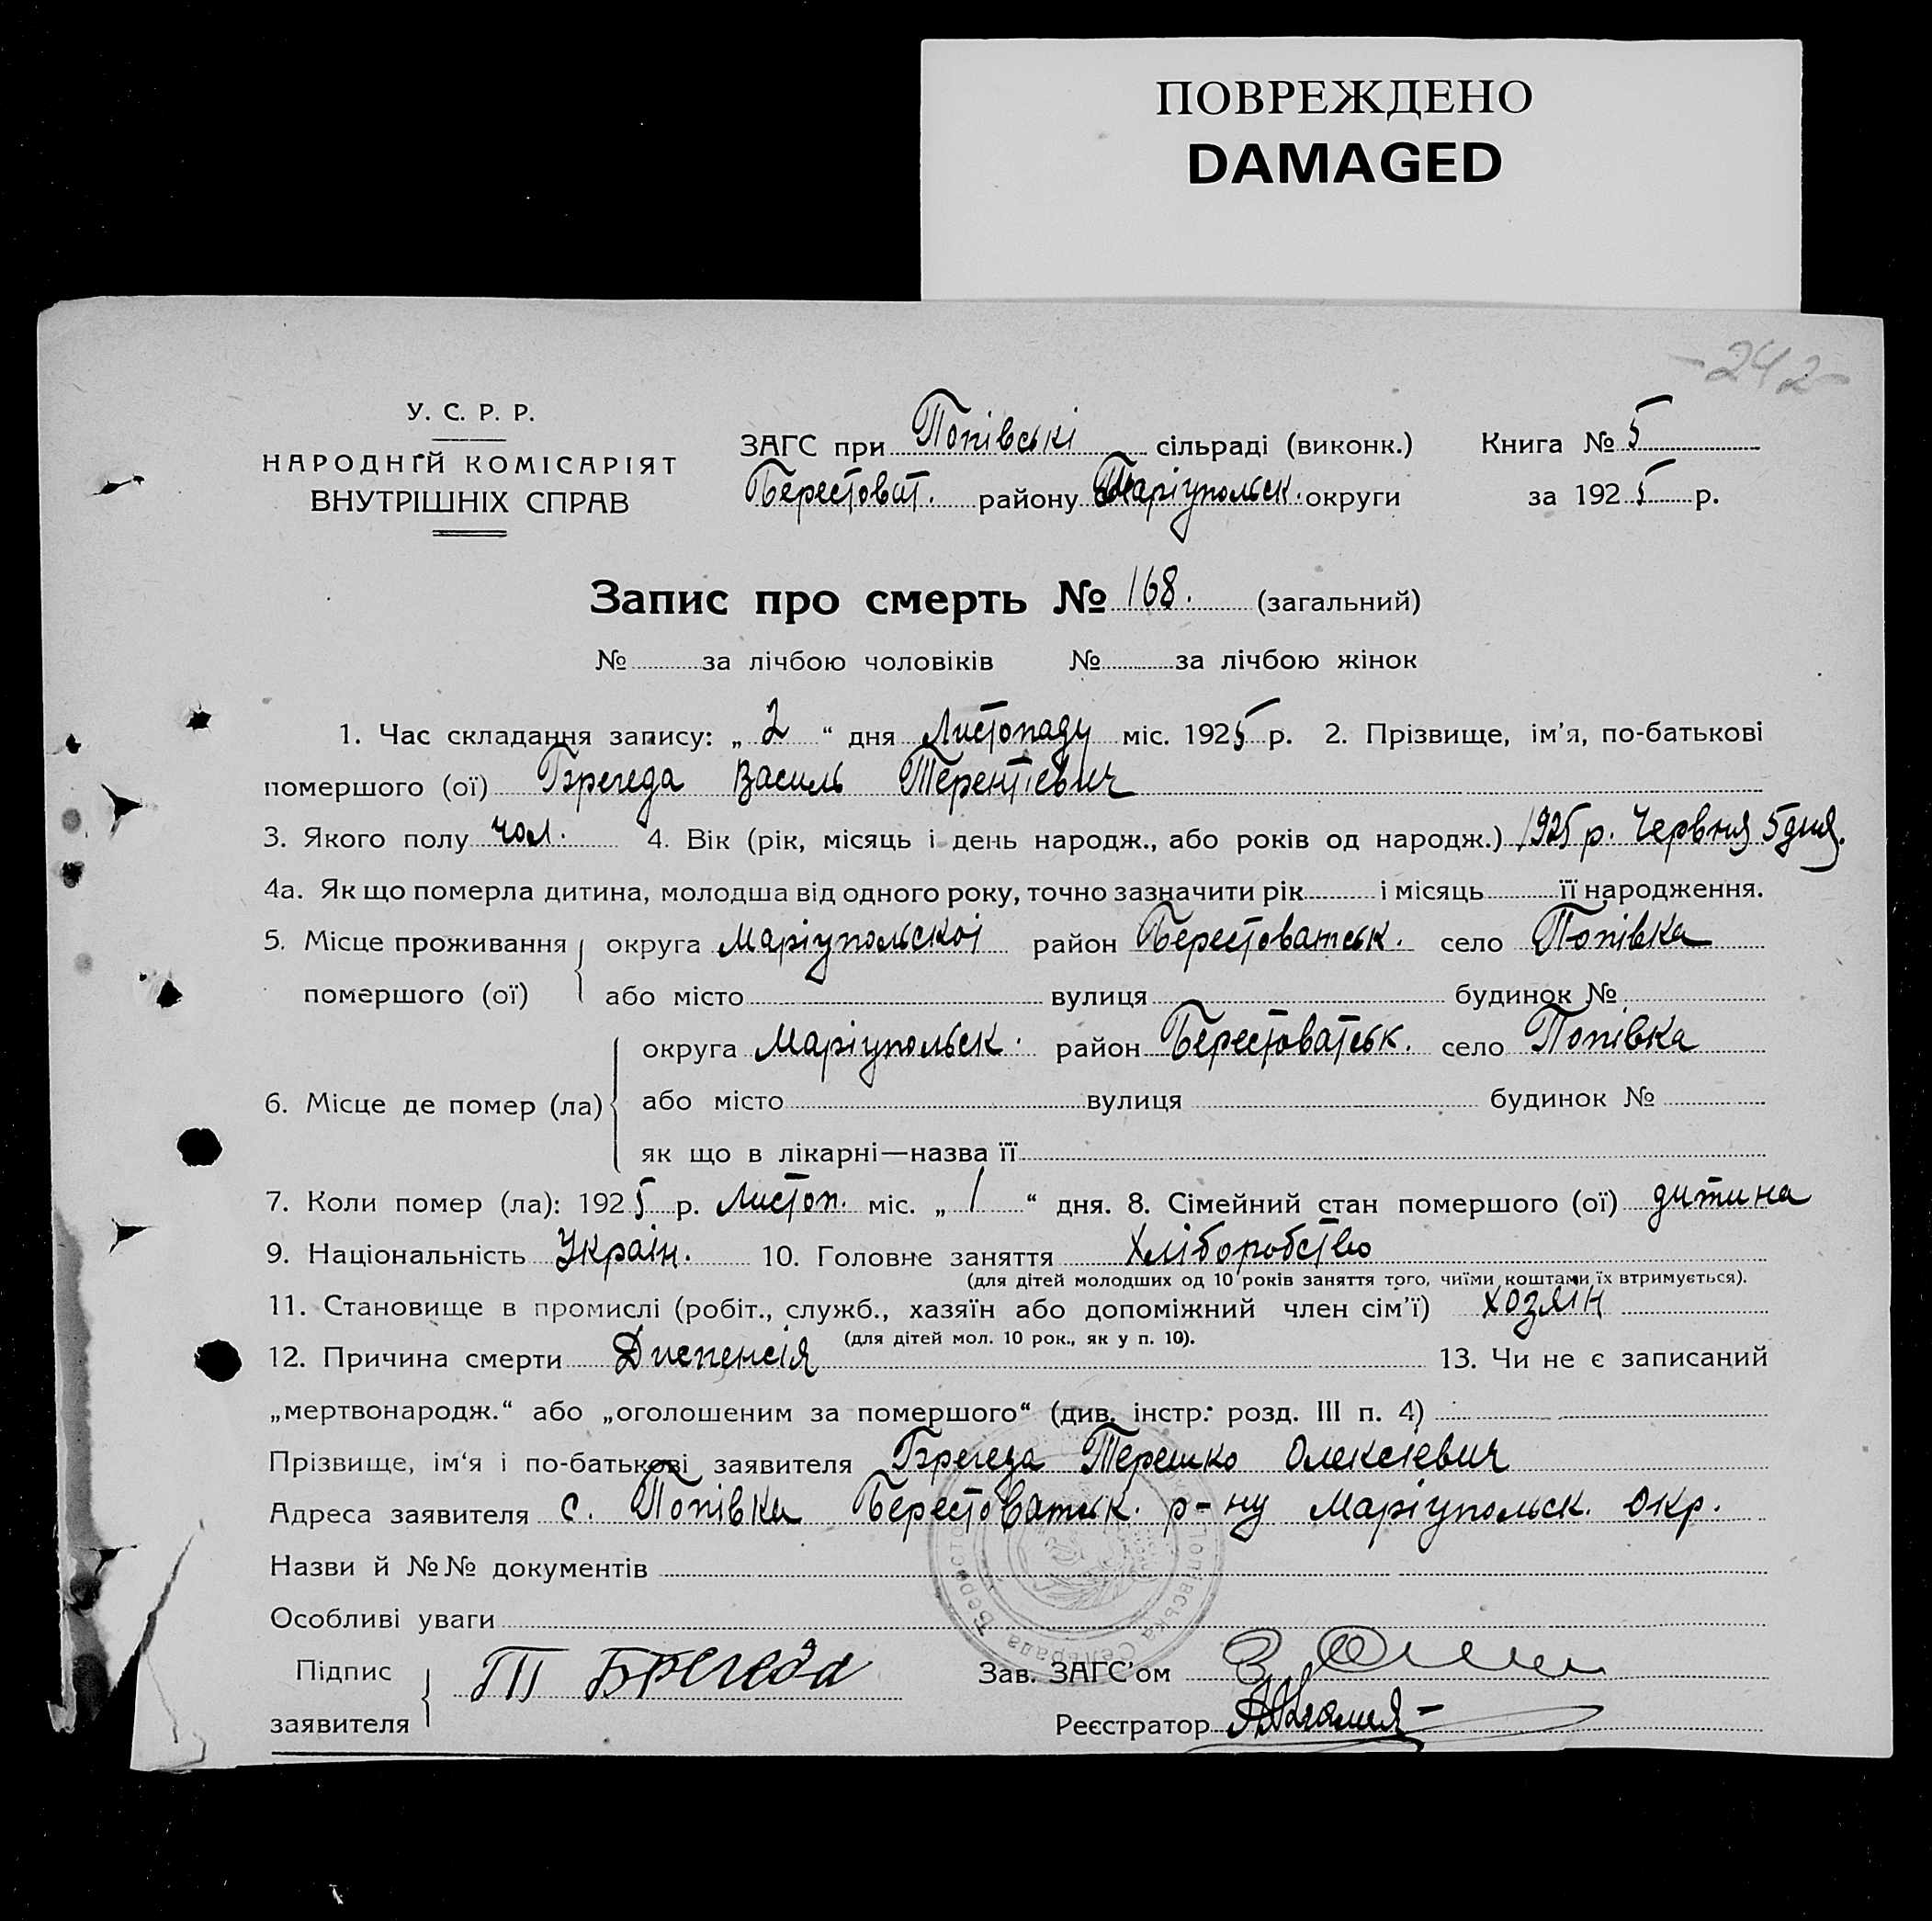 ПОВРЕЖДЕНО
DAMAGED
-242-
У. С. Р. Р.
НАРОДНІЙ КОМІСАРІЯТ
ВНУТРІШНІХ СПРАВ
ЗАГС при Попівські сільраді (виконк.) Книга № 5
Берестоват. району Маріупольск. округи за 1925 р.
Запис про смерть № 168. (загальний)
№ за лічбою чоловіків № за лічбою жінок
1. Час складання запису: „2“ дня Листопаду міс. 1925 р. 2. Прізвище, ім’я, по-батькові
помершого (ої) Брегеда Василь Терентієвич
3. Якого полу чол. 4. Вік (рік, місяць і день народж., або років од народж.) 1925 р. Червня 5 дня.
4а. Як що померла дитина, молодша від одного року, точно зазначити рік і місяць її народження.
5. Місце проживання округа Маріупольскоі район Берестоватськ. село Попівка
помершого (ої) або місто вулиця будинок №
округа Маріупольськ. район Берестоватськ. село Попівка
6. Місце де помер (ла) або місто вулиця будинок №
як що в лікарні—назва її
7. Коли помер (ла): 1925 р. Листоп. міс. „1“ дня. 8. Сімейний стан помершого (ої) дитина
9. Національність Украін. 10. Головне заняття Хліборобство
(для дітей молодших од 10 років заняття того, чиїми коштами їх втримується).
11. Становище в промислі (робіт., служб., хазяїн або допоміжний член сім’ї) хозяїн
(для дітей мол. 10 рок., як у п. 10).
12. Причина смерти Диспенсія 13. Чи не є записаний
„мертвонародж.“ або „оголошеним за помершого“ (див. інстр. розд. III п. 4)
Прізвище, ім‘я і по-батькові заявителя Брегеда Терешко Олексієвич
Адреса заявителя с. Попівка Берестоватськ. р-ну Маріупольск. окр.
Назви й №№ документів
Особливі уваги
Підпис заявителя Т Брегеда
Зав. ЗАГС’ом
Реєстратор
Попівська Сельрада